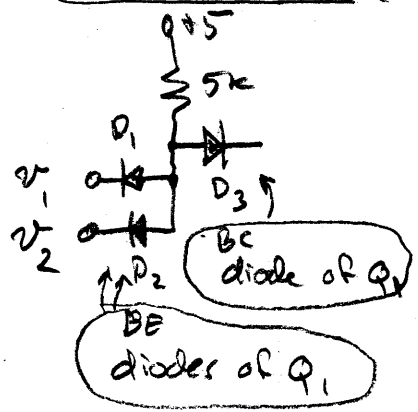 +5
5k
D1
D3
v1
v2
D2
BC
diode of Q1
BE
diodes of Q1